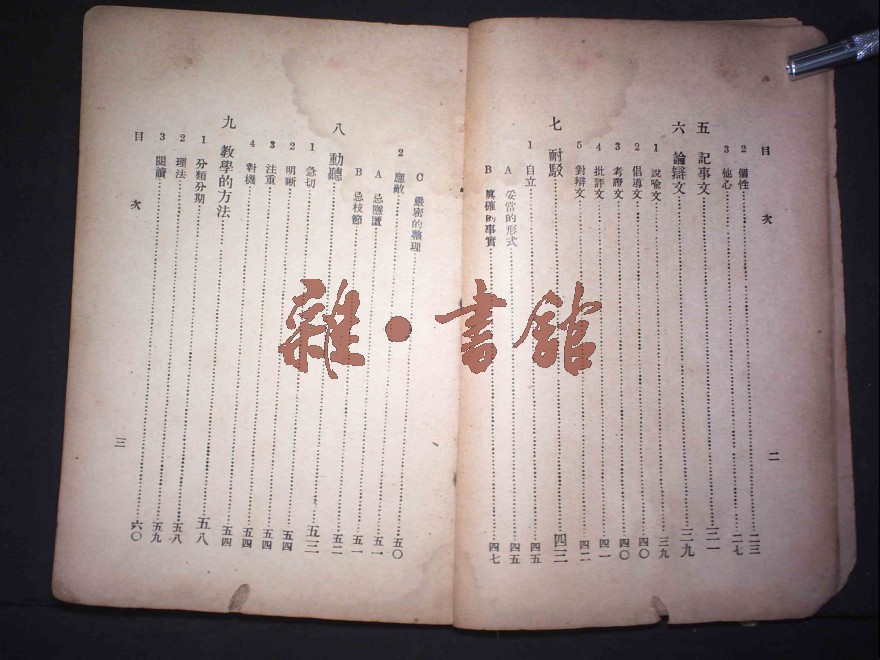 目次
2 個性……二三
3 他心……二七
五 記事文……三一
六 論辯文……三九
1 說喻文……三九
2 倡導文……四〇
3 考證文……四〇
4 批評文……四一
5 對辯文……四二
七 耐駁……四三
1 自立……四五
A 妥當的形式……四五
B 眞確的事實……四七
二
C 嚴密的義理……五〇
2 應敵
A 忌隱匿……五一
B 忌枝節……五一
八 動聽……五二
1 急切……五三
2 明晰……五四
3 注重……五四
4 對機……五四
九 教學的方法……五四
1 分類分期……五八
2 理法……五八
3 閱讀……五九
目次……六〇
三
雜·書館